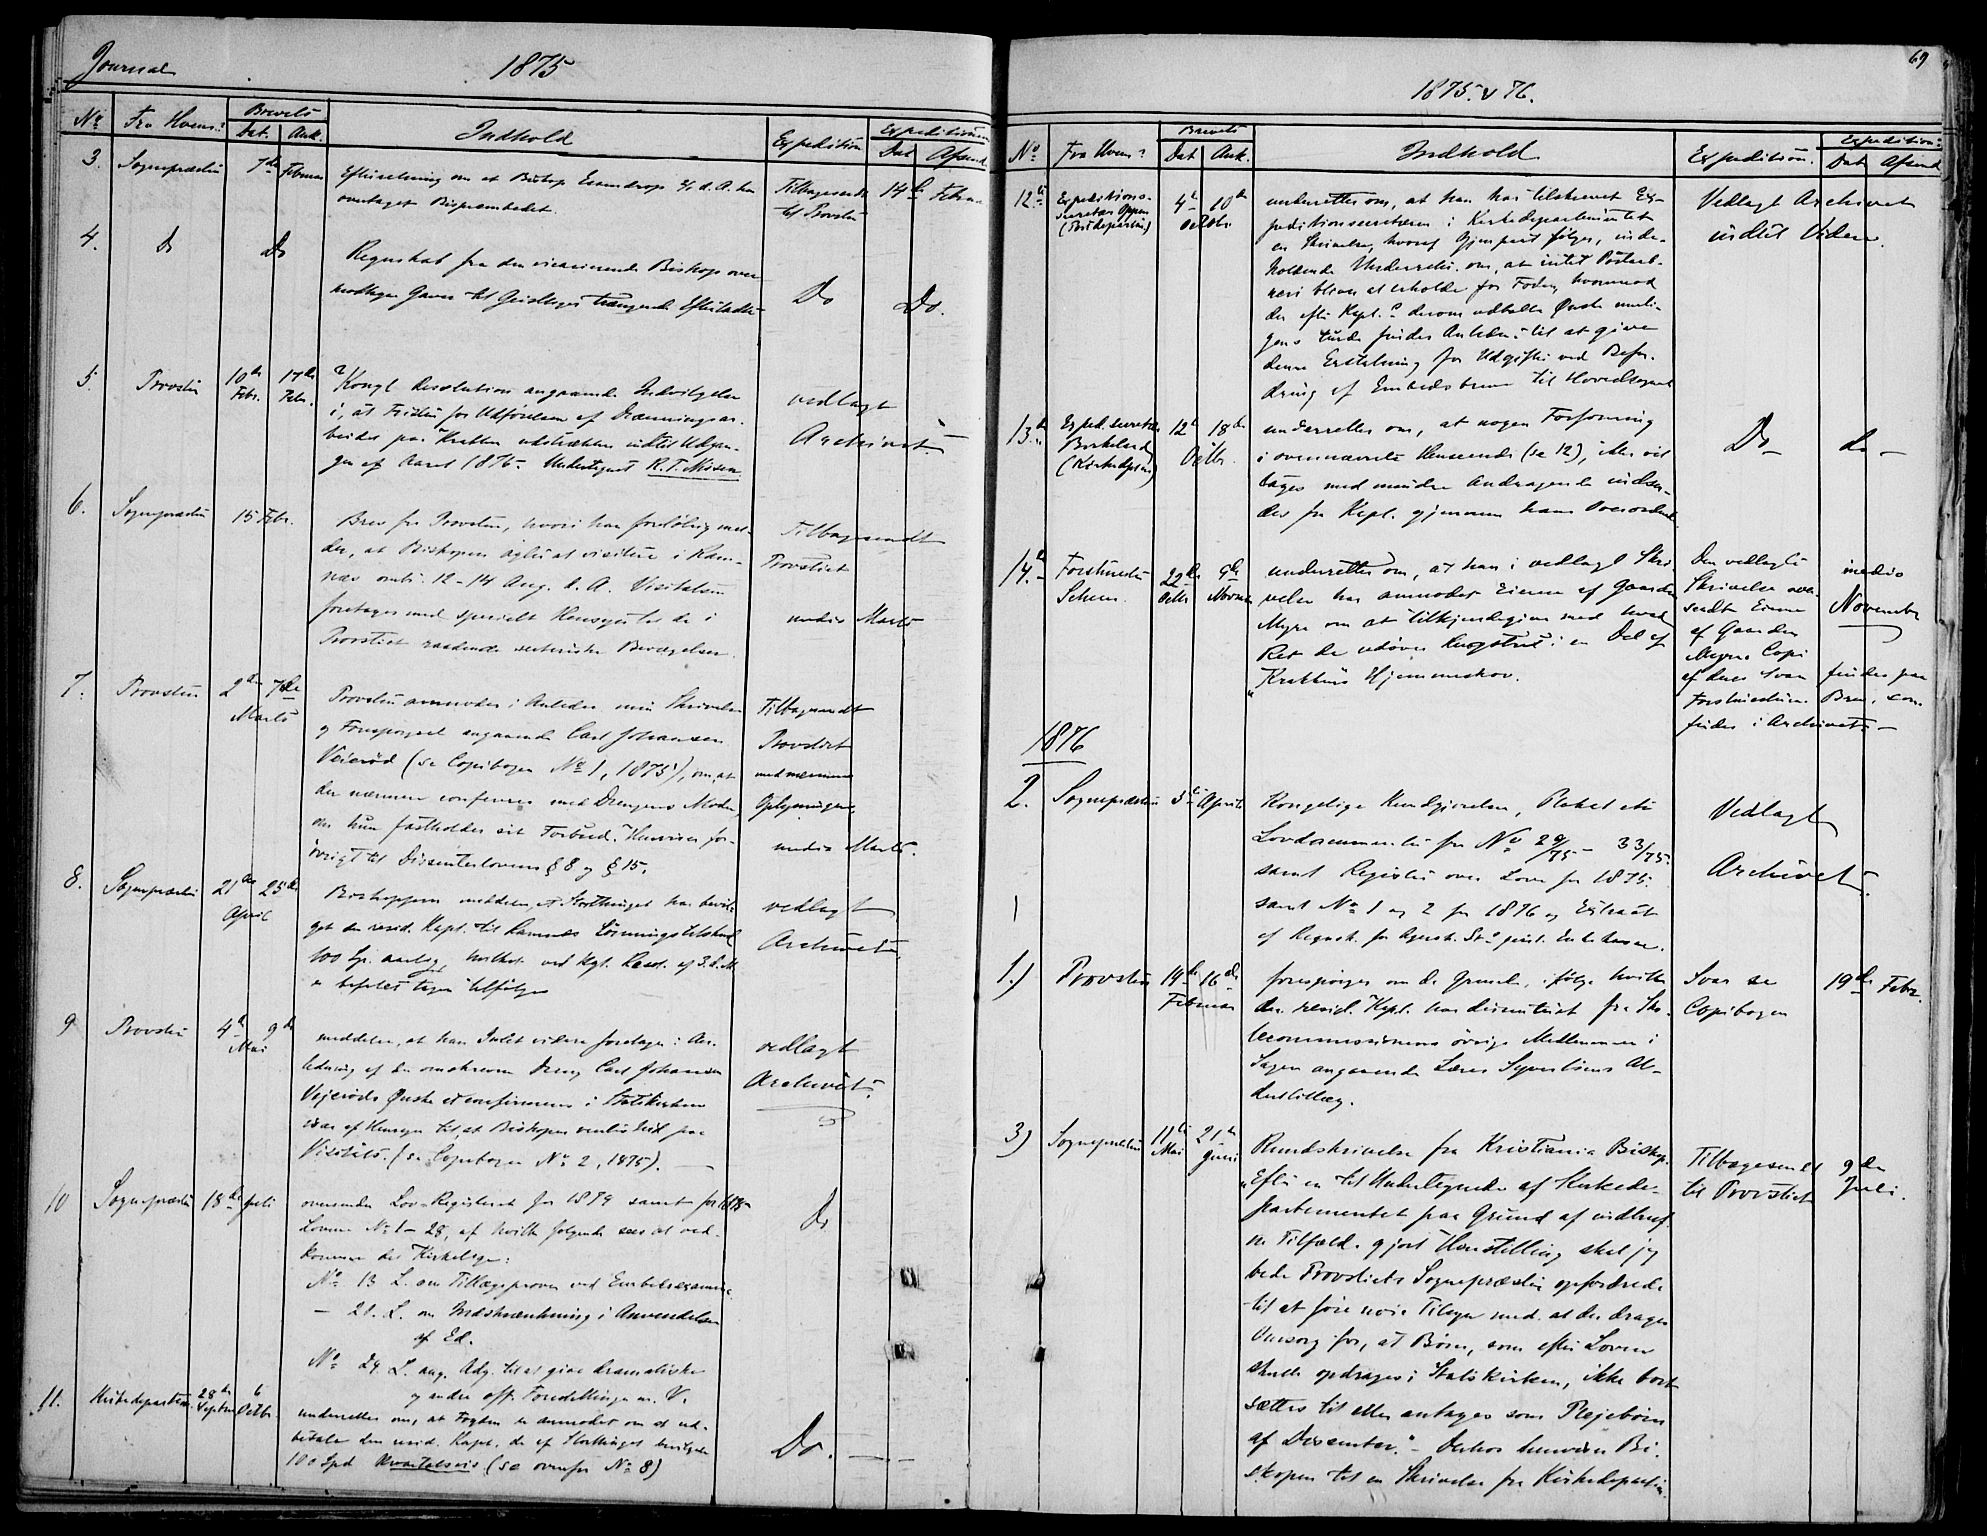 Journal
1875
No Fra Hvem? Brevets Dat. Ank. Indhold Expedition Expeditionen Dat Afsend.
3. Sognepræsten 7de Februar
Efterretning om at Biskop Essendrop d. A. har
overtaget Bispeembedet.
Tilbagesendt
til Provsten
14de Febru
4. do Do
Regnskab fra den vicarierende Biskop over
modtagne Gaver til Geistliges trængende Efterladte
Do Do.
5. Provsten 10de Febr. 17de Febr.
Kongl. Resolution angaaende Indvilgelse
i, at Fristen for Udførelsen af Dræningsar-
beider paa Krakken udstrækkes indtil Udgan-
gen af Aaret 1876. Undertegnet R. T. Nissen
vedlagt
Archivet.
6. Sognepræsten 15 Febr.
Brev fra Provsten, hvori han foreløbig mel-
der, at Biskopen agter at visitere i Ram-
næs omtr. 12-14 Aug. d. A. Visitatsen
foretages med specielt Hensyn til de i
Provstiet raadende sekteriske Bevægelser.
Tilbagesendt
Provstiet
medio Marts
7. Provsten 2den 7de Marts
Provsten anmoder i Anledn. min Skrivelse
og Forespørgsel angaaende Carl Johansen
Veierød (se Copibogen No 1, 1875), om, at
der nærmere confereres med Drengens Moder,
om hun fastholder sit Forbud. Henviser for-
øvrigt til Dissenterlovens § 8 og § 15.
Tilbagesendt
Provstiet
med nærmere
Oplysninger,
medio Marts.
8. Sognepræsten 21de 25de April
Biskoppen meddeler, at Storthinget har bevil-
get den resid. Kapl. til Ramnes Lønningstilskud
100 Spd. aarlig, hvilket ved Kgl. Resol. af 3. d. M.
er befalet tagen tilfølge
vedlagt
Archivet.
9 Provsten 4de 9de Mai
meddeler, at han Intet videre foretager i An-
ledning af den omskrevne Dreng Carl Johansen
Vejerøds Ønske at confirmeres i Statskirken
især af Hensyn til, at Biskopen ventes hid paa
Visitats. (se Copibogen No 2, 1875).
vedlagt
Archivet.
10 Sognepræsten 18de Juli
oversender Lov-Registeret for 1874 samt for 1875
Lovene No 1-28, af hvilke følgende sees at ved-
komme det Kirkelige:
No 13 L. om Tillægsprøver ved Embedsexamin
— 20. L. om Indskrænkning i Anvendelsen
af Ed.
No 24 L. ang. Adg. til at give dramatiske
og andre off. Forestillinger m. V.
Do
11. Kirkedepartem. 28de Septbr 6 Octbr.
underretter om, at Fogden er anmodet om at ud-
betale den resid. Kapl. de af Storthinget bevilgede
100 Spd kvartalsvis (se ovenfor No 8)
Do. — —
69
1875. & 76.
No Fra Hvem? Brevets Dat Ank. Indhold Expedition. Expedition: Dat Afsend.
12te Expeditions-
secretær
(Postdepartem)
4de 10de Octbr.
underrettes om, at han har tilskrevet Ex-
peditionssecretæren i Kirkedepartementet
en Skrivelse, hvoraf Gjenpart følger, inde-
holdende Underretn. om, at intet Postaab-
neri bliver at erholde for Foden, hvorimod
der efter Kapl.s derom udtalte Ønske muli-
gens turde findes Anledn. til at give
denne Erstatning for Udgifter ved Befor-
dring af Embedsbreve til Hovedsognet
Vedlagt Archivet
indtil Videre.
13de Exped. secretær
Birkeland
(Kirkedptm)
12te 18de Octbr.
underrettes om, at nogen Forføining
i ovennævnte Henseende (se 12), ikke vil
tages med mindre Andragende indsen-
des fra Kapl. gjennem hans Overordnede
Do — do —
14de Forstmester
Scheen.
22de Octbr 9de Novem
underretter om, at han i vedlagt Skri-
velse har anmodet Eieren af Gaarden
Myre om at tilkjendegive med hvad
Ret de udøver Hugstret i en Del af
"Krakkens" Hjemmeskov.
Den vedlagte
Skrivelse over-
sendte Eierne
af Gaarden
Myre. Copi
af deres Svar findes paa
Forstmesterens Brev, som
findes i Archivet. —
medio
November
1876
2. Sognepræsten 3de April
Kongelige Kundgjørelser, Plakat etc
Lovdocumenter fra No 29/75 - 33/75.
samt Register over Love for 1875.
samt No 1 og 2 for 1876 og Extract
af Regnsk. for Agersh. St. geistl. Enkekasse.
Vedlagt
Archivet.
1.) Provsten 14de 16de Februar
forespørger om de Grunde, ifølge hvilke
den resid. Kapl. har dissenteret fra Sko-
lecommissionens øvrige Medlemmer i
Sagen angaaende Lærer Syvertsens Al-
derstillæg.
Svar se
Copibogen
19de Febr.
3) Sognepræsten 11te Mai 21de Juni
Rundskrivelse fra Kristiania Biskop.
"Efter en til Undertegnede af Kirkede-
partementet paa Grund af indtruf-
ne Tilfælde gjort Henstilling skal jeg
bede Provstiets Sognepræster opfordrede
til at føre nøie Tilsyn med. at der drages
Omsorg for, at Børn, som efter Loven
skulle opdrages i Statskirken, ikke bort-
sættes til eller antages som Plejebørn
af Dissenter." — Derhos henviser Bi-
skopen til en Skrivelse fra Kirkedepartem.
Tilbagesendt
til Provstiet
9de
Juli.